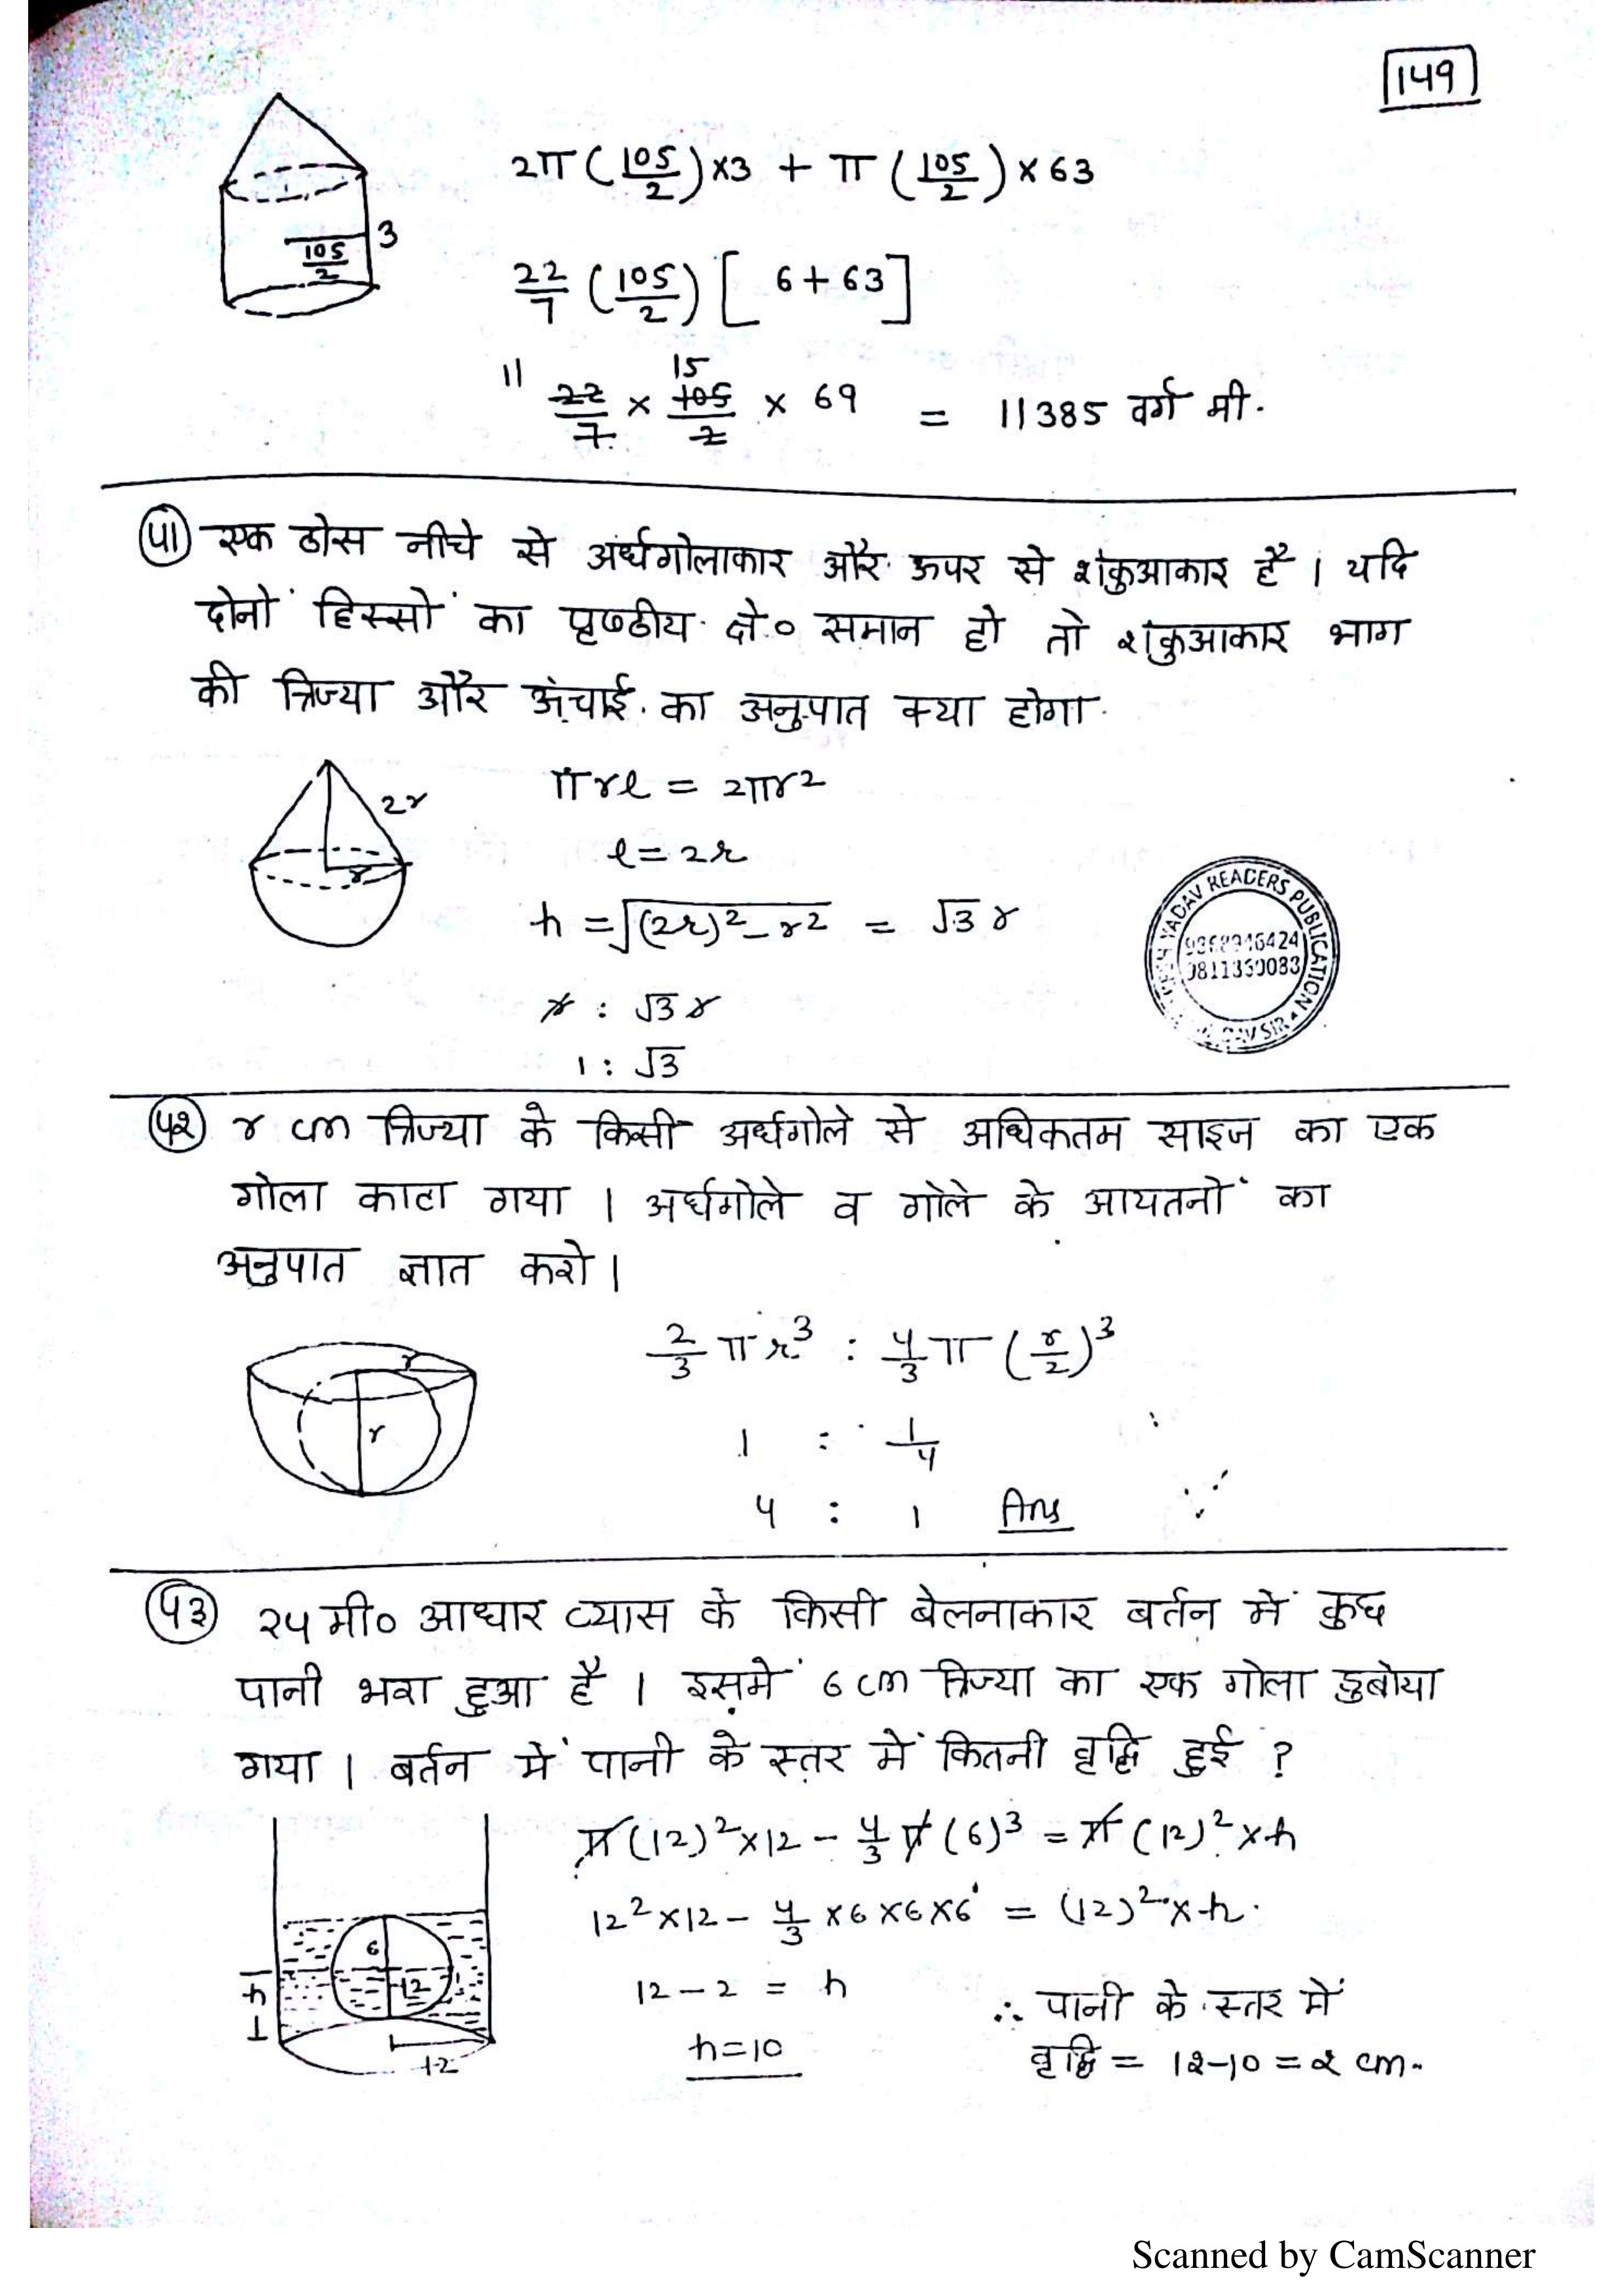 149
2π(105/2)×3 + π(105/2)×63
105/2
3
22/7 (105/2) [6+63]
11 15
22/7 × 105/2 × 69 = 11385 वर्ग मी.
५१ एक ठोस नीचे से अर्धगोलाकार और ऊपर से शंकुआकार है। यदि
दोनों हिस्सों का पृष्ठीय क्षे० समान हो तो शंकुआकार भाग
की त्रिज्या और ऊंचाई का अनुपात क्या होगा
πrl = 2πr²
2r
r
l=2r
h = √(2r)²-r² = √3 r
r : √3 r
1 : √3
YADAV READERS PUBLICATION
9811350083
५२ r cm त्रिज्या के किसी अर्धगोले से अधिकतम साइज का एक
गोला काटा गया। अर्धगोले व गोले के आयतनों का
अनुपात ज्ञात करो।
2/3 πr³ : 4/3 π (r/2)³
r
r
1 : 1/4
4 : 1 Ans
५३ २५ मी० आधार व्यास के किसी बेलनाकार बर्तन में कुछ
पानी भरा हुआ है। इसमें 6 cm त्रिज्या का एक गोला डुबोया
गया। बर्तन में पानी के स्तर में कितनी वृद्धि हुई ?
π(12)²×12 - 4/3 π(6)³ = π(12)²×h
12²×12 - 4/3 ×6×6×6 = (12)²×h.
6
12
h
12
12 - 2 = h
h=10
∴ पानी के स्तर में
वृद्धि = 1२-10 = २ cm.
Scanned by CamScanner